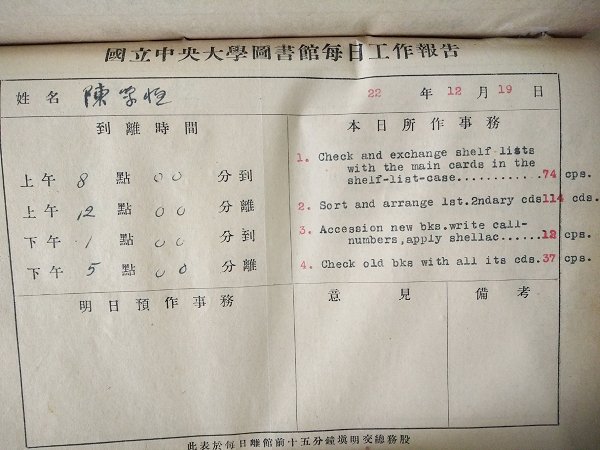 國立中央大學圖書館每日工作報告
姓名 陳學恒
22 年 12 月 19 日
到離時間
上午 8 點 00 分到
上午 12 點 00 分離
下午 1 點 00 分到
下午 5 點 00 分離
本日所作事務
1. Check and exchange shelf lists
with the main cards in the
shelf-list-case............74 cps.
2. Sort and arrange 1st.2ndary cds114 cds.
3. Accession new bks.write call-
numbers,apply shellac......12 cps.
4. Check old bks with all its cds.37 cps.
明日預作事務
意見
備考
此表於每日離館前十五分鐘填明交總務股